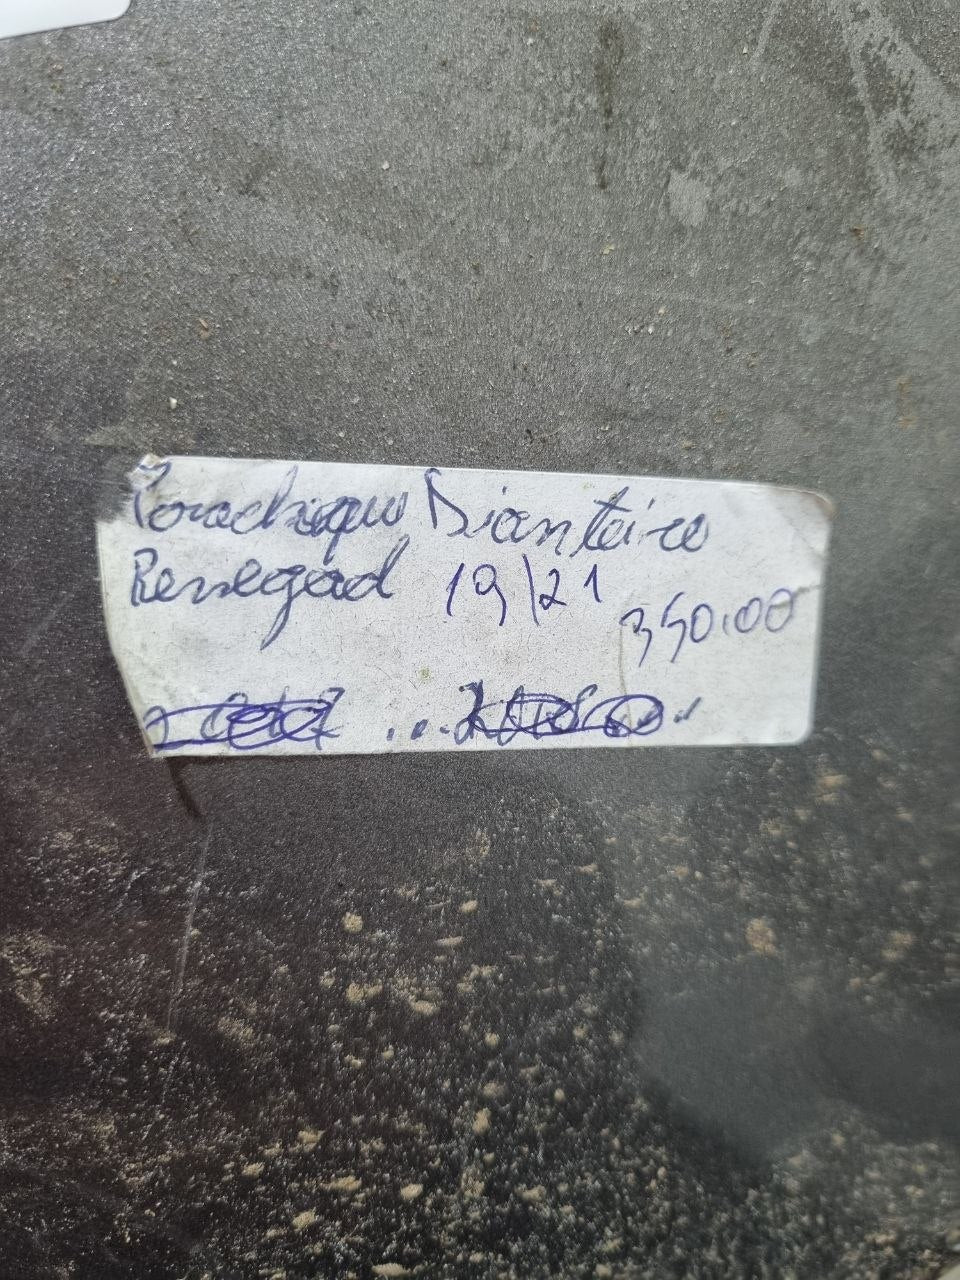 Parachoque Dianteiro
Renegad 19/21
350.00